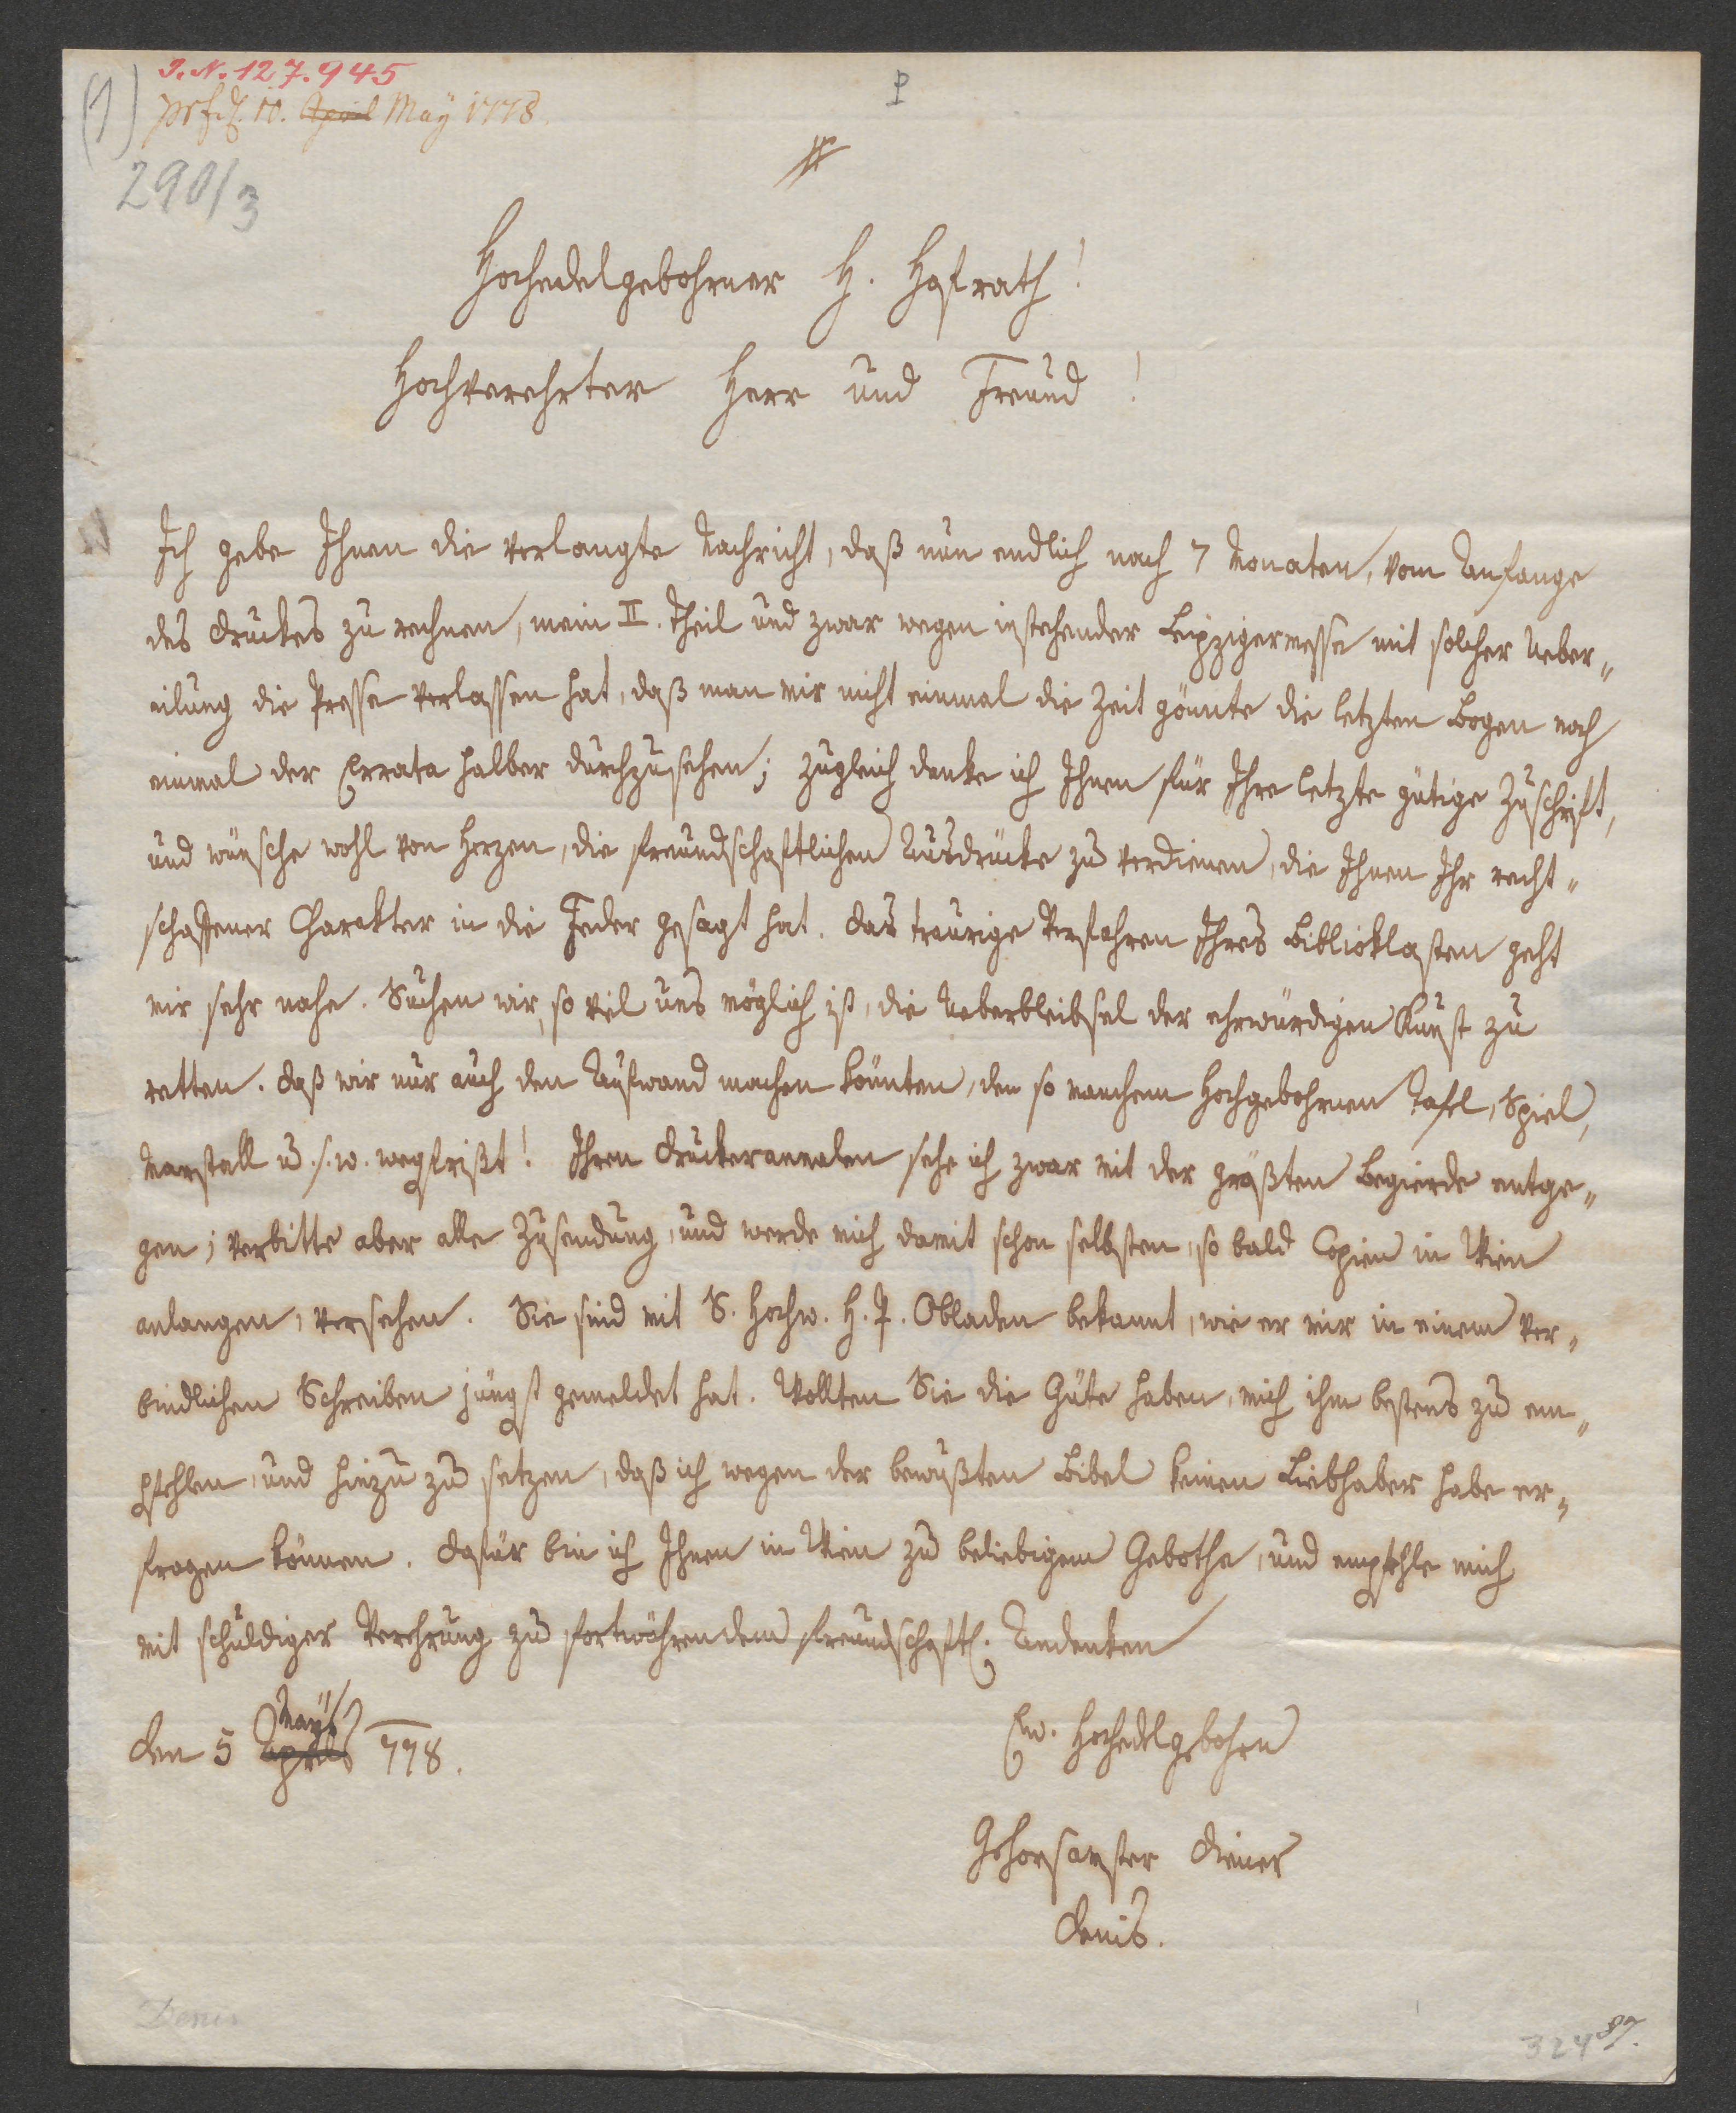 J. N. 127.945
(1)
P
10. April May 1778.
290/3
Hochedelgebohrner H. Hofrath!
Hochverehrter Herr und Freund!
Ich gebe Ihnen die verlangte Nachricht, daß nun endlich nach 7 Monaten, vom Anfange
des Druckes zu rechnen, mein II. Theil und zwar wegen instehender Leipzigermesse mit solcher Ueber„
eilung die Presse verlassen hat, daß man mir nicht einmal die Zeit gönnte die letzten Bogen noch
einmal der Errata halber durchzusehen; zugleich danke ich Ihnen für Ihre letzte gütige Zuschrift,
und wünsche wohl von Herzen, die freundschaftlichen Ausdrücke zu verdienen, die Ihnen Ihr recht„
schaffener Charakter in die Feder gesagt hat. Das traurige Verfahren Ihres Biblioklasten geht
mir sehr nahe. Suchen wir, so viel uns möglich ist, die Ueberbleibsel der ehrwürdigen Kunst zu
retten. Daß wir nur auch den Aufwand machen könnten, den so manchem Hochgebohrnen Tafel, Spiel,
Marstall u. s. w. wegfrißt! Ihren Druckerannalen sehe ich zwar mit der größten Begierde entge„
gen; verbitte aber alle Zusendung, und werde mich damit schon selbsten, so bald Copien in Wien
anlangen, versehen. Sie sind mit S. Hochw. H. P. Obladen bekannt, wie er mir in einem ver„
bindlichen Schreiben jüngst gemeldet hat. Wollten Sie die Güte haben, mich ihm bestens zu em„
pfehlen, und hinzu zu setzen, daß ich wegen der bewußten Bibel keinen Liebhaber habe er„
fragen können. Dafür bin ich Ihnen in Wien zu beliebigem Gebothe, und empfehle mich
mit schuldiger Verehrung zu fortwährendem freundschaftl. Andenken
May
Den 5 Aprils 778.
Ew. Hochedelgebohrn
Gehorsamster Diener
Denis.
Denis
324